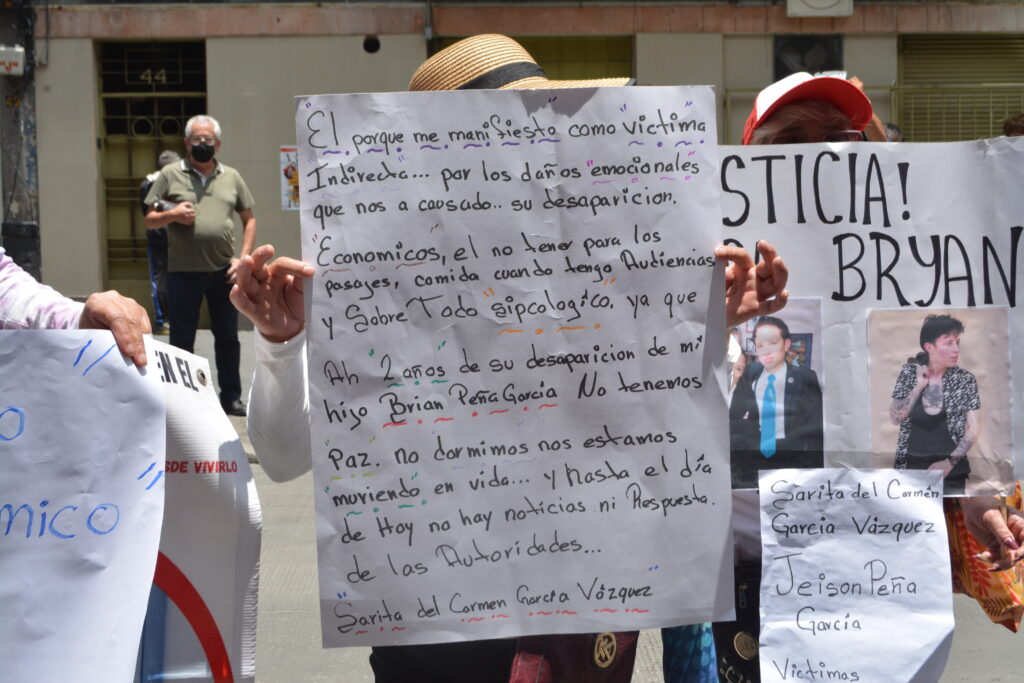 44
"El porque me manifiesto como victima
Indirecta... por los daños "emocionales"
que nos a causado.. su desaparicion.
"Economicos, el no tener para los
pasajes, comida cuando tengo Audiencias
y Sobre Todo "sipcologico", ya que
Ah "2 años" de su desaparicion de mi
hijo Brian Peña Garcia No tenemos
Paz. no dormimos nos estamos
muriendo en vida... y hasta el día
de Hoy no hay noticias ni Respuesta.
de las Autoridades...
"Sarita del Carmen Garcia Vázquez"
STICIA!
BRYAN
Sarita del Carmen
Garcia Vázquez
Jeison Peña
García
Victimas
EN EL
SDE VIVIRLO
O
mico